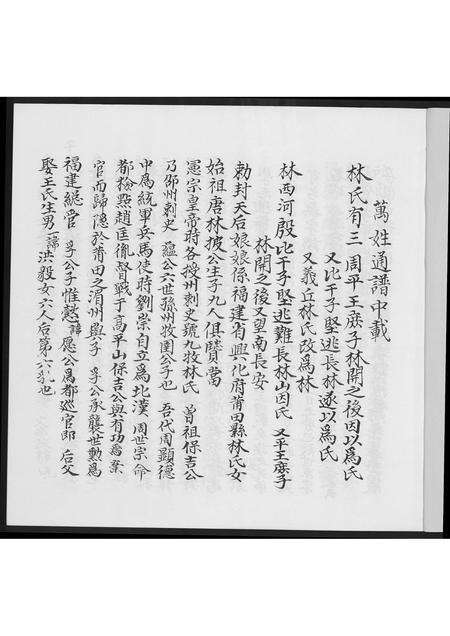 萬姓通譜中載
林氏有三 周平王庶子林開之後因以爲氏
又比干子堅逃長林遂以爲氏
又義丘林氏改爲林
林西河殷比干子堅逃難長林山因氏 又平王庶子
林開之後又望南長安
勅封天后娘娘係福建省興化府莆田縣林氏女
始祖唐林披公生子九人俱賢當
憲宗皇帝時各授州刺史號九牧林氏 曾祖保吉公
乃邵州刺史 蘊公六世孫州牧圉公子也 五代周顯德
中爲統軍兵馬使時劉崇自立爲北漢 周世宗命
都檢點趙匡胤督戰于高平山保吉公與有功焉棄
官而歸隱於莆田之湄州嶼子 孚公承襲世勳爲
福建總管 孚公子惟慤諱愿公爲都巡官即 后父
娶王氏生男一諱洪毅女六人后第六乳也